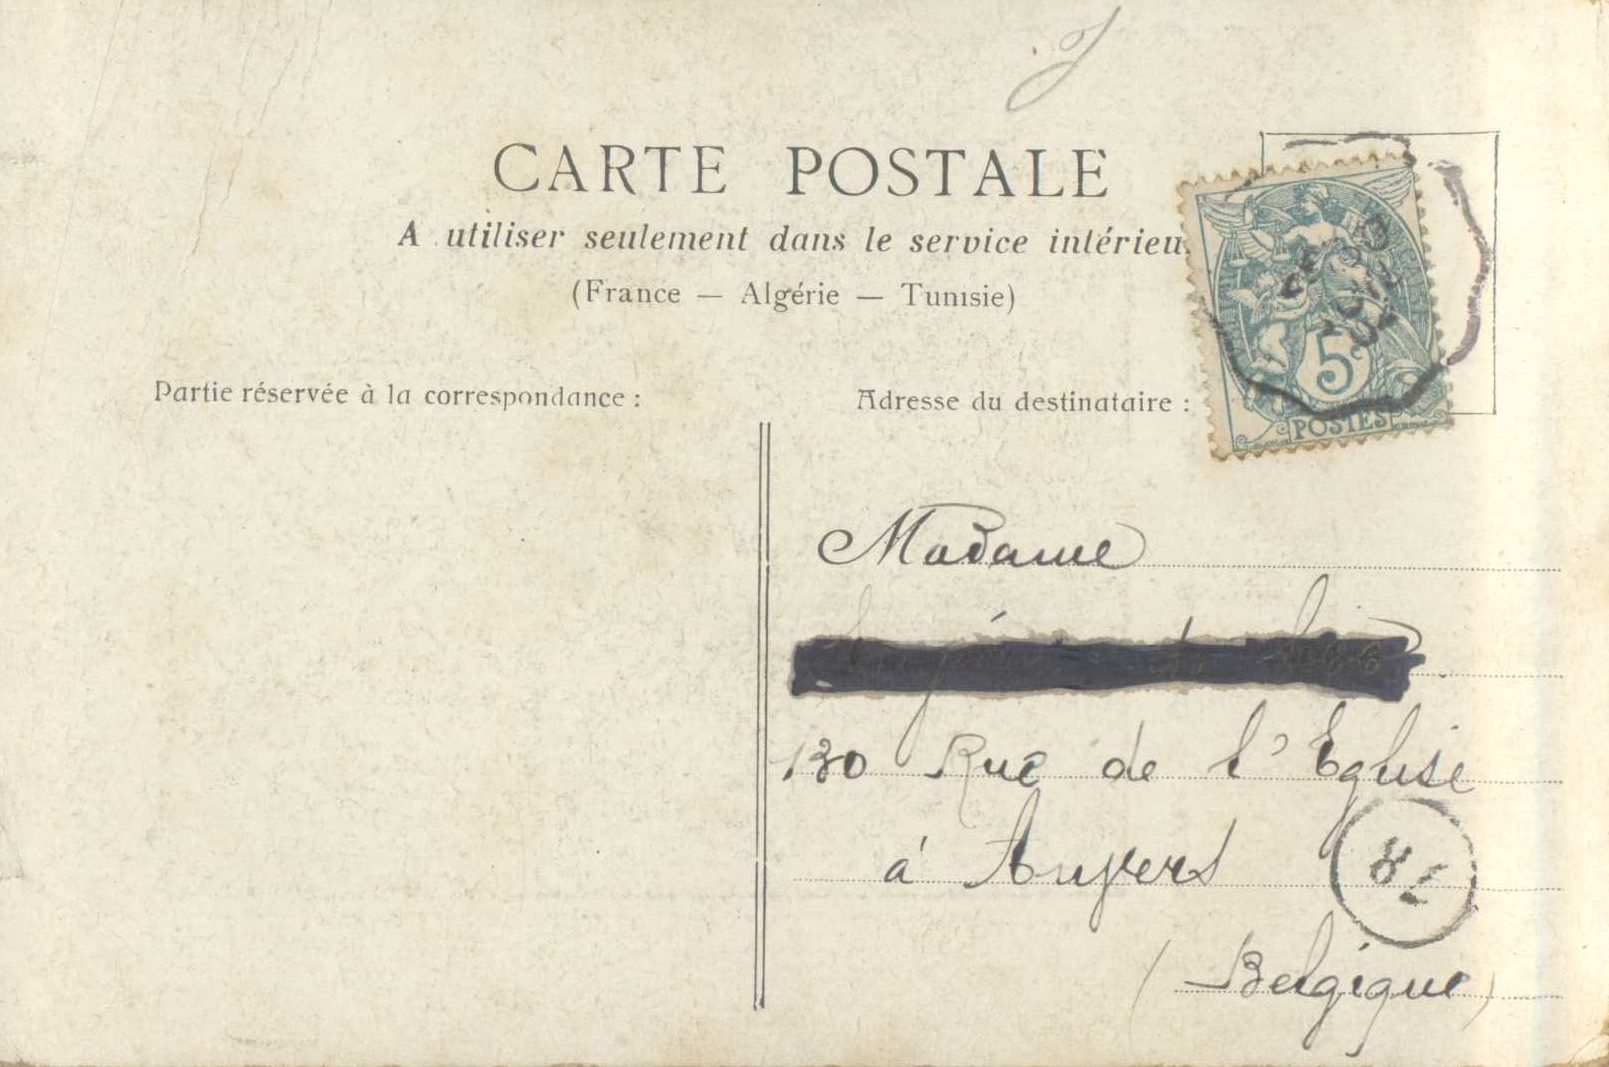 CARTE POSTALE
A utiliser seulement dans le service intérieu
(France — Algérie — Tunisie)
Partie réservée à la correspondance :
Adresse du destinataire :
5
POSTES
Madame
130 Rue de l'Eglise
à Anvers
(Belgique)